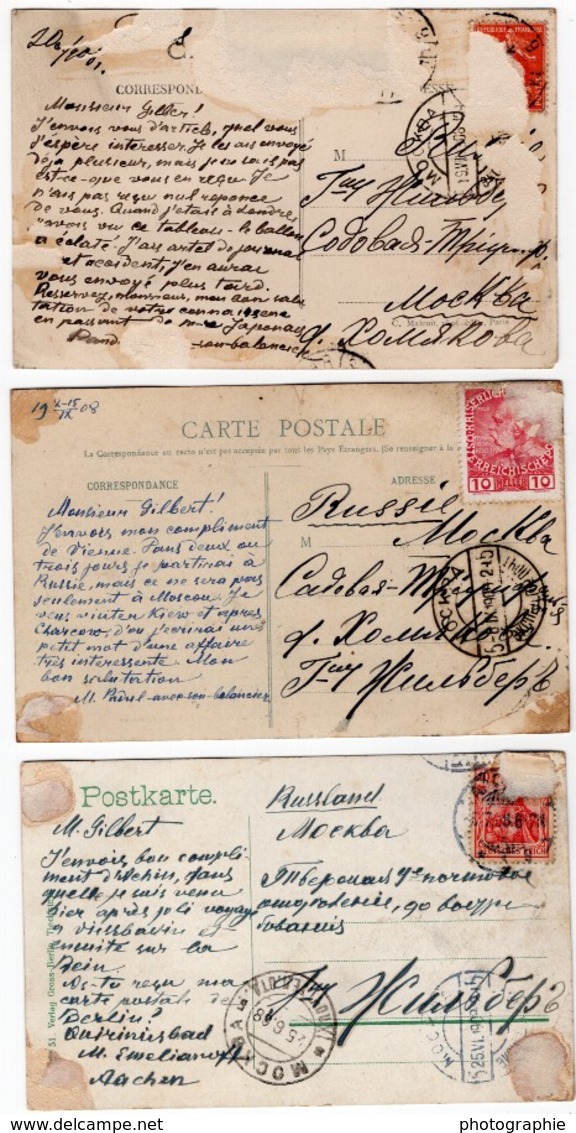 CORRESPOND
Monsieur Gilbert!
J'envois vous d'article, quel vous
j'espère interesser. Je les ais envoyé
déja plusieur, mais je ne sais pas
est-ce que vous en reçu. Je
n'ais pas reçu nul reponce
de vous. Quand j'etais à Londres
vu ce tableau - le ballon
a éclaté. J'ais artel de journal
et accident, J'en aurai
vous envoyé plus tard.
monsieur, mon bon salu
tation de votre
en passant de m-me Japonais
son balancier
REPUBLIQUE FRANÇAISE
МОСКВА
M
Г-ну Жильбер
Садовая-Триумф.
Москва
д. Хомякова
Paris
19 08
CARTE POSTALE
La Correspondance au recto n'est pas acceptée par tous les Pays Etrangers. (Se renseigner à la
CORRESPONDANCE
ADRESSE
Monsieur Gilbert!
J'envois mon compliment
de Vienne. Dans deux ou
trois jours je partirai à
Russie, mais ce ne sera pas
seulement à Moscou. Je
veus visiter Kiew et après
Charcow, d'ou j'ecrirai une
petit mot d'une affaire
très interessente. Mon
bon salutation
10 HELLER 10
M
Russie
Москва
Садовая-Триумфальная
д. Хомякова
Г-ну Жильберъ
Postkarte.
M. Gilbert
J'envois bon compli-
ment d'Achen, dans
quelle je suis venu
hier après joli voyage
à Wissbadin et
ensuite sur la
Rein.
As-tu reçu ma
carte postale de
Berlin?
Quirinusbad
M. Emelianoff
Aachen
51 Verlag Gross-Berlin
Russland
Москва
Тверская 9е почтовое
отделение, до востре
бования
Г-ну Жильберъ
МОСКВА
25.6.08
25.VI.19
photographie